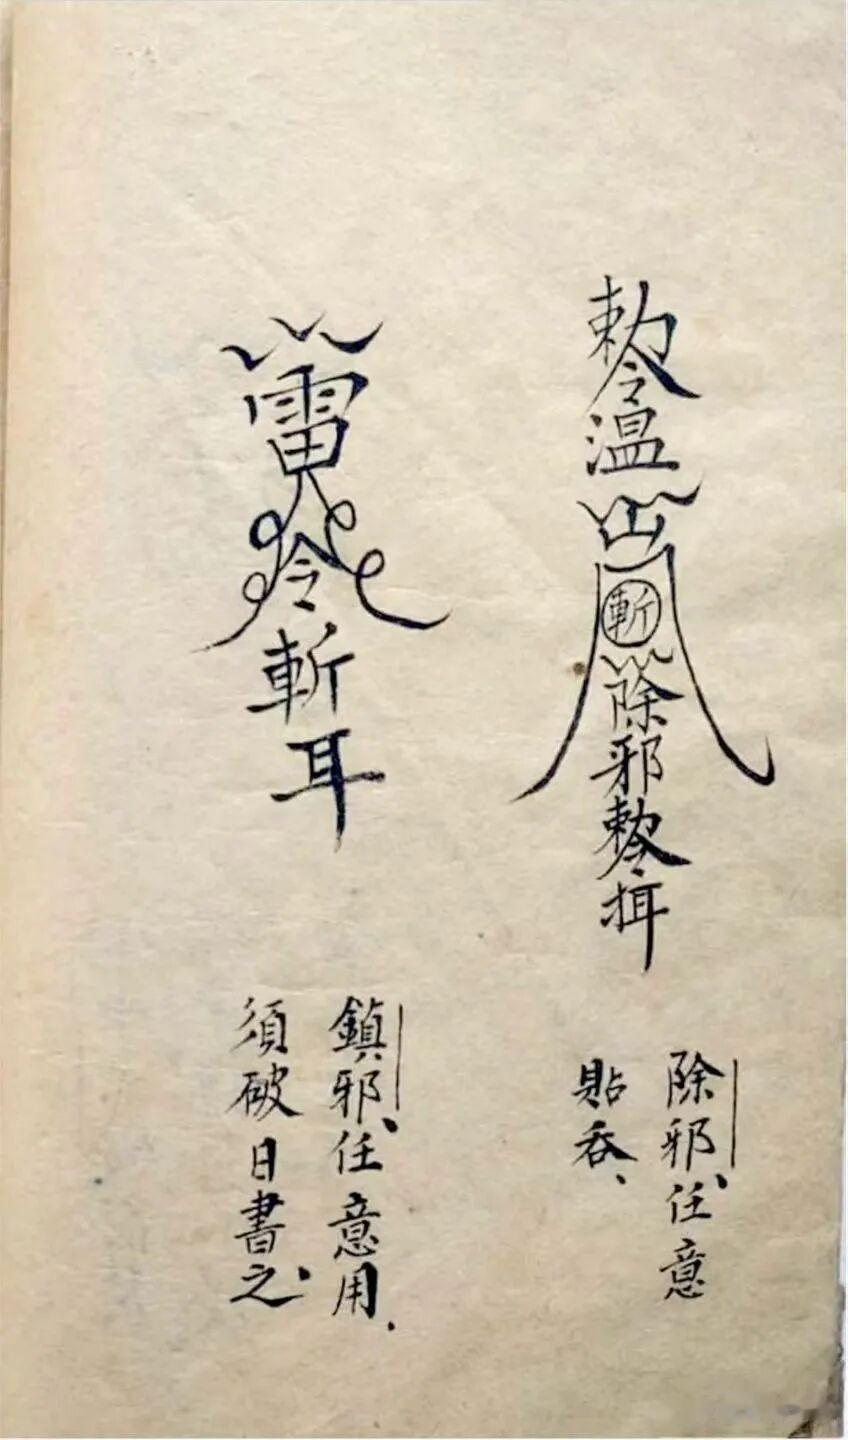 勅令温山斬除邪勅令挕
除邪、任意
貼吞、
雷令斬耳
鎮邪、任意用、
須破日書之、